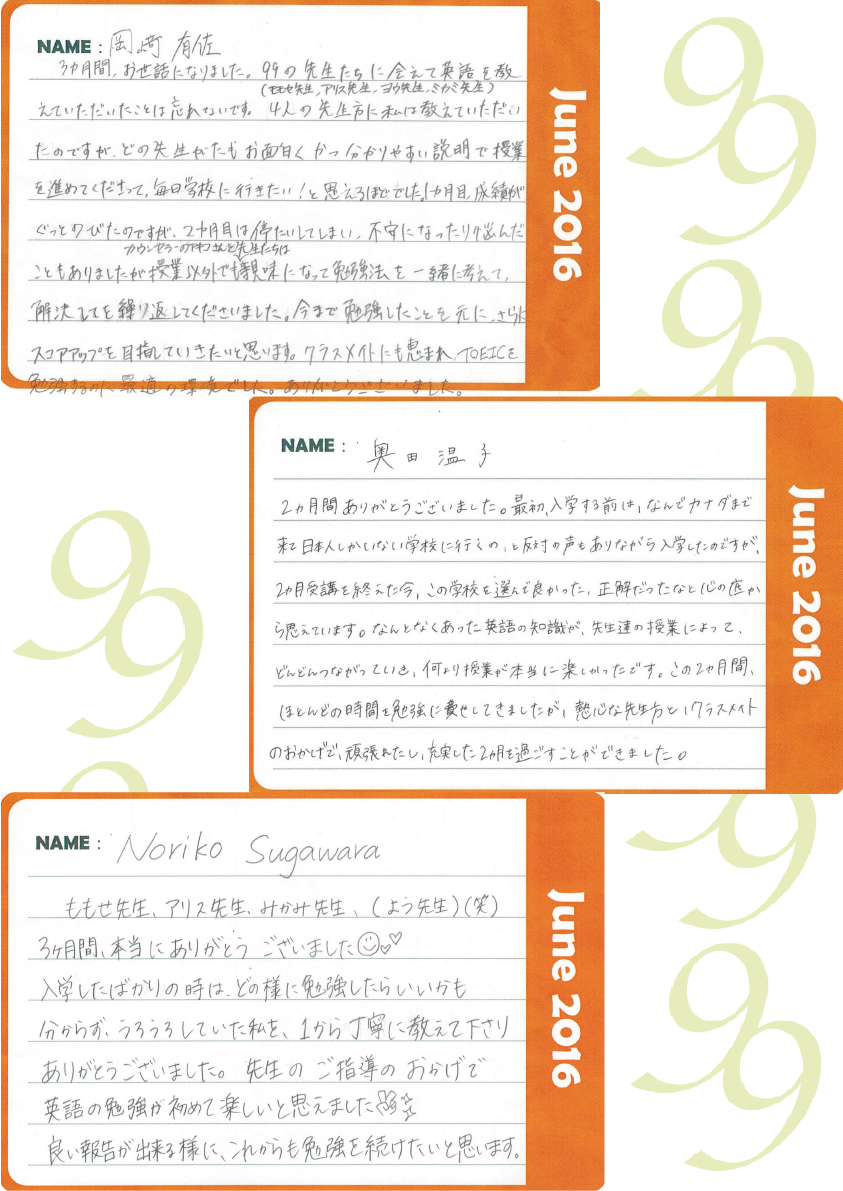 NAME : 岡崎 有佐
3カ月間、お世話になりました。99の先生たちに会えて英語を教
(ももせ先生、アリス先生、ヨウ先生、ミカミ先生)
えていただいたことは忘れないです。4人の先生方に私は教えていただい
たのですが、どの先生がたもお面白くかつ分かりやすい説明で授業
を進めてくださって、毎日学校に行きたい!と思えるほどでした。1カ月目、成績が
ぐっとのびたのですが、2カ月目は停たいしてしまい、不安になったり悩んだ
カウンセラーのアキコさんと先生たちは
こともありましたが授業以外でも親味になって勉強法を一緒に考えて、
解決してを繰り返してくださいました。今まで勉強したことを元に、さらに
スコアアップを目指していきたいと思います。クラスメイトにも恵まれ、TOEICを
勉強するのに最適の環境でした。ありがとうございました。
June 2016
99
99
NAME : 奥田 温子
2ヵ月間ありがとうございました。最初、入学する前は、なんでカナダまで
来て日本人しかいない学校に行くの、と反対の声もありながら入学したのですが、
2ヵ月受講を終えた今、この学校を選んで良かった、正解だったなと心の底か
ら思えています。なんとなくあった英語の知識が、先生達の授業によって、
どんどんつながっていき、何より授業が本当に楽しかったです。この2ヵ月間、
ほとんどの時間を勉強に費やしてきましたが、熱心な先生方と、クラスメイト
のおかげで、頑張れたし、充実した2ヵ月を過ごすことができました。
June 2016
99
NAME : Noriko Sugawara
ももせ先生、アリス先生、みかみ先生、(よう先生)(笑)
3ヶ月間、本当にありがとうございました
入学したばかりの時は、どの様に勉強したらいいかも
分からず、うろうろしていた私を、1から丁寧に教えて下さり
ありがとうございました。先生のご指導のおかげで
英語の勉強が初めて楽しいと思えました
良い報告が出来る様に、これからも勉強を続けたいと思います。
June 2016
99
99